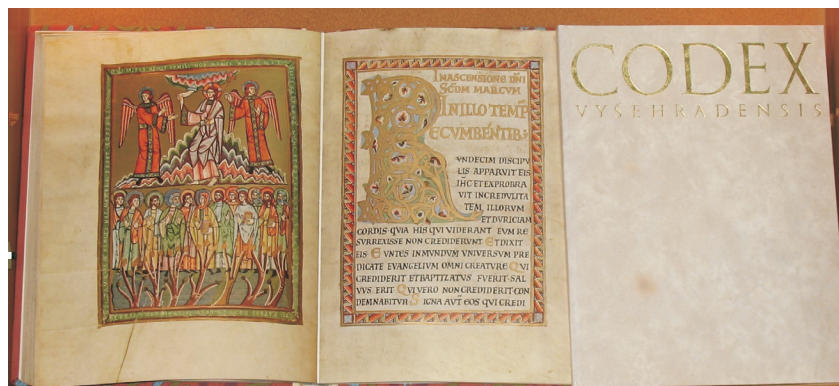 INASCENSIONE DNI
SCDM MARCVM
IN ILLO TEMP
R ECVMBENTIB;
VNDECIM DISCIPV
LIS APPARVIT EIS
IHC ET EXPROBRA
VIT INCREDVLITA
TEM ILLORVM
ET DVRICIAM
CORDIS QVIA HIS QVI VIDERANT EVM RE
SVRREXISSE NON CREDIDERVNT ET DIXIT
EIS EVNTES IN MVNDVM VNIVERSVM PRE
DICATE EVANGELIVM OMNI CREATVRE QVI
CREDIDERIT ET BAPTIZATVS FVERIT SAL
VVS ERIT QVI VERO NON CREDIDERIT CON
DEMNABITVR SIGNA AVT EOS QVI CREDI
CODEX
VYŠEHRADENSIS